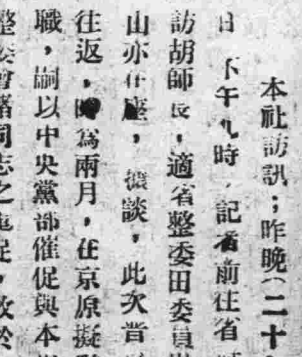 本社訪訊；昨晚（二十
日　下午九時，記者前往省
訪胡師長，適省整委田委員
山亦在座，據談，此次晉
往返，時為兩月，在京原擬
職，嗣以中央黨部催促與本
整委會諸同志之電促，故於